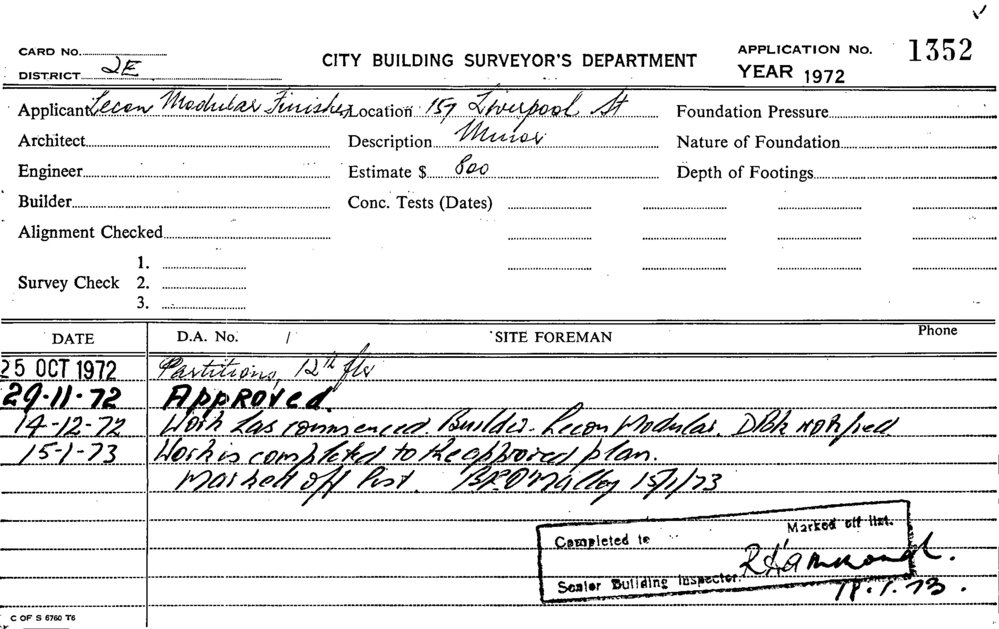 CARD No.
DISTRICT 2E
CITY BUILDING SURVEYOR'S DEPARTMENT
APPLICATION No. 1352
YEAR 1972
Applicant Lecon Modular Finishes Location 157 Liverpool St Foundation Pressure
Architect Description Minor Nature of Foundation
Engineer Estimate $ 800 Depth of Footings
Builder Conc. Tests (Dates)
Alignment Checked
1.
Survey Check 2.
3.
DATE D.A. No. / SITE FOREMAN Phone
25 OCT 1972 Partitions, 12th flr
29-11-72 Approved.
14-12-72 Work has commenced. Builder- Lecon Modular. notified
15-1-73 Work is completed to the approved plan.
Marked off List. B.R. O'Malley 15/1/73
Completed to Marked off list.
Senior Building Inspector.
18.1.73.
C OF S 6760 T6